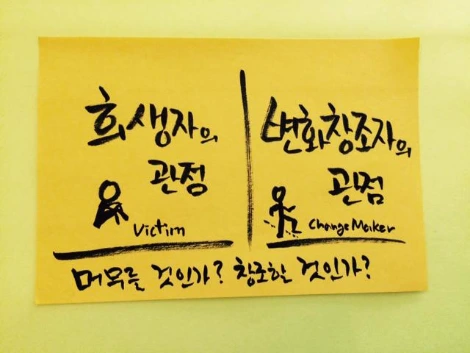 희생자의
관점
Victim
변화창조자의
관점
Change Maker
머무를 것인가? 창조할 것인가?